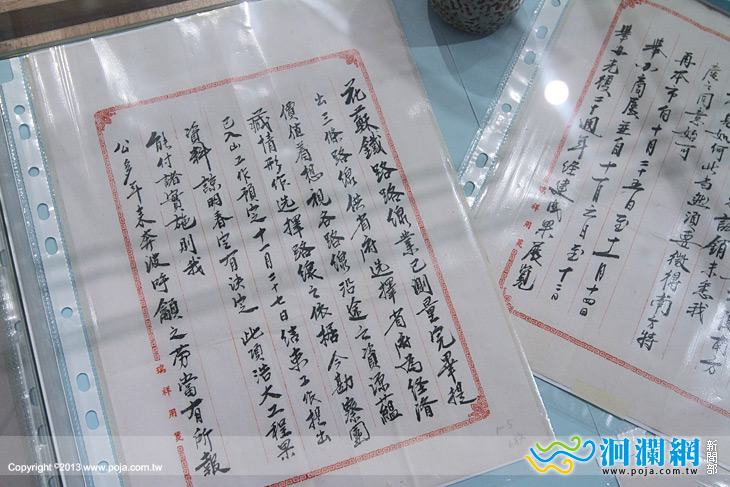 再本市自十月二十五日至十一月十四日
舉办商展並自十一月六日至十三日
舉办光復二十週年經建成果展覽
瑞祥用箋
花蘇鐵路路線業已測量完畢提
出三條路線供省府選擇省府為經濟
價值着想視各路線沿途之資源蘊
藏情形作選擇路線之依據今勘察團
已入山工作預定十一月二十七日結束工作提出
資料諒明春定有決定此項浩大工程果
能付諸實施則我
公多年來奔波呼籲之勞當有所報
瑞祥用箋
Copyright ©2013 www.poja.com.tw
洄瀾網
新聞部
www.poja.com.tw